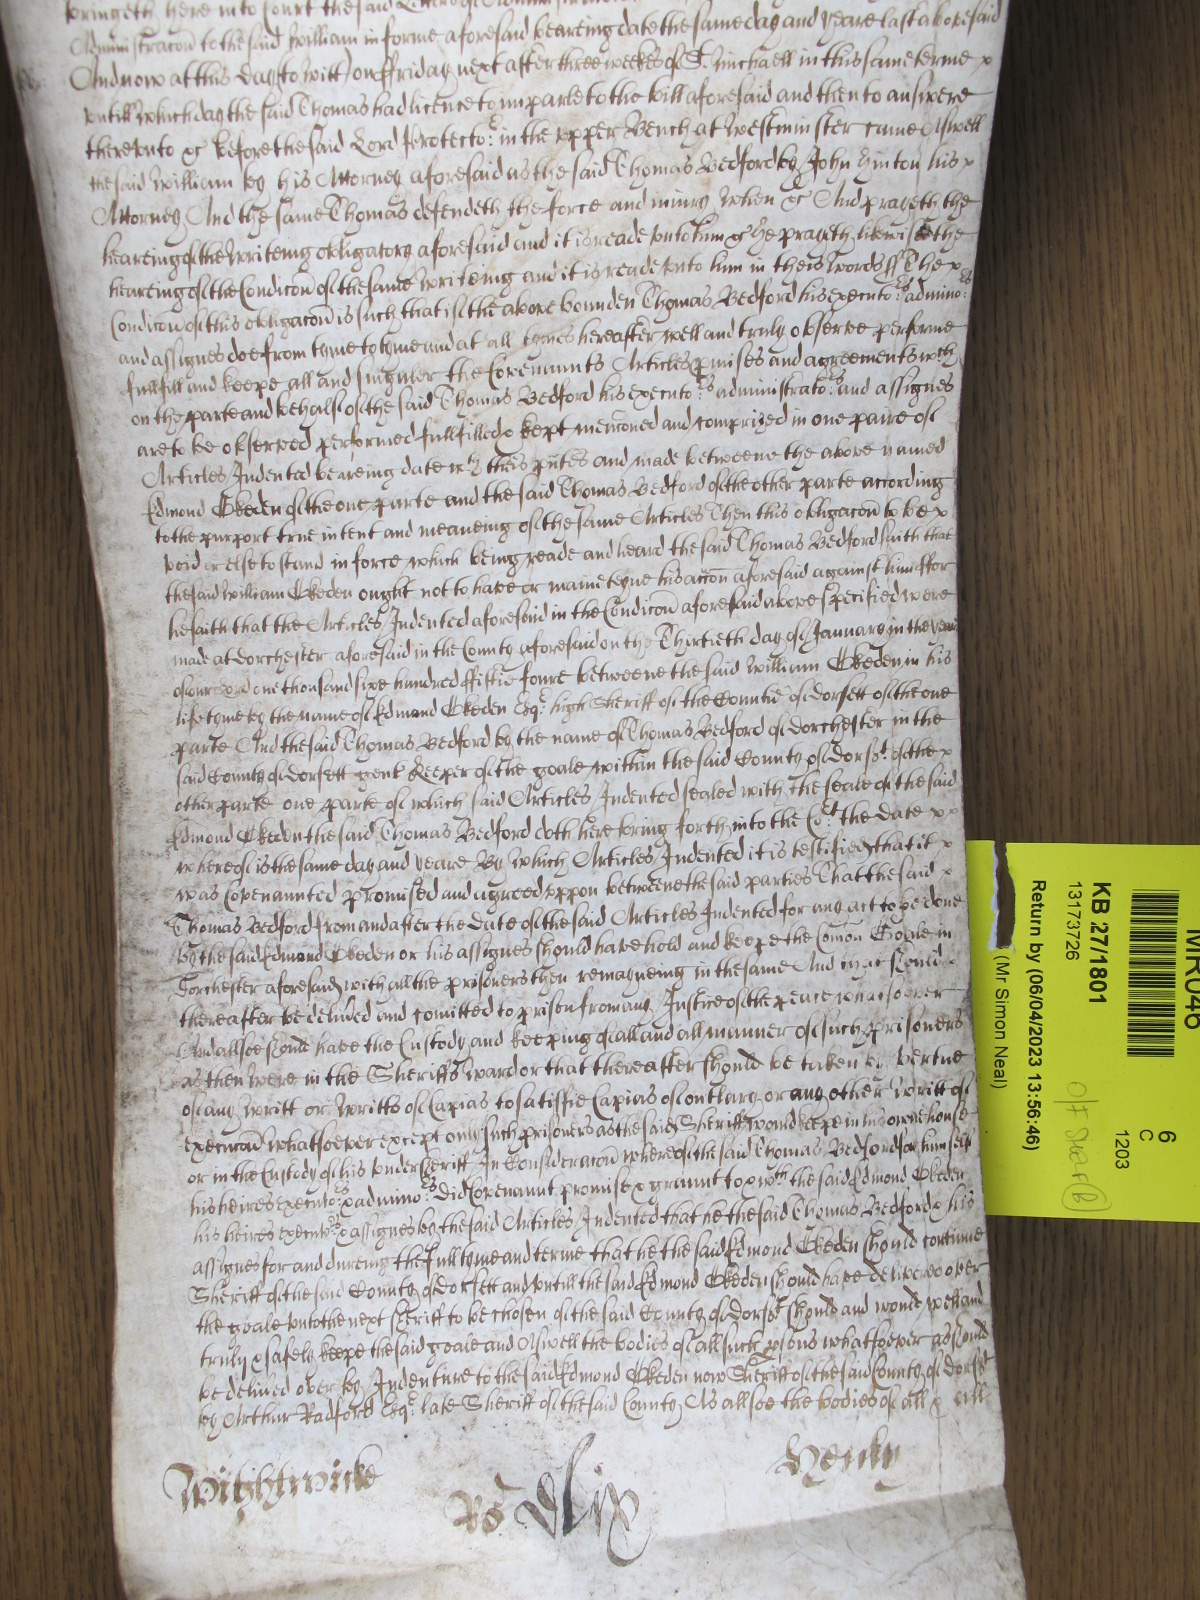 bringeth here into Court the said Letters of Administracon
Administracon to the said William in forme aforesaid beareing date the same day and yeare last abovesaid
And now at this day to witt on ffriday next after three weekes of St. Michaell in this same terme x
untill which day the said Thomas had licence to imparle to the bill aforesaid and then to answere
thereunto &c before the said Lord Protector in the upper Bench at Westminster came Aswell
the said William by his Attorney aforesaid as the said Thomas Bedford by John Hinton his x
Attorney And the same Thomas defendeth the force and iniury when &c And prayeth the
heareing of the Writeing obligatory aforesaid and it is reade unto him &c he prayeth likewise the
heareing of the Condicon of the same writeing and it is reade unto him in theis words ss The x
Condicon of this obligacon is such that if the above bounden Thomas Bedford his executors admino:rs
and assignes doe from tyme to tyme and at all tymes hereafter well and truly observe performe
fullfill and keepe all and singuler the Covenannts Articles pmises and agreements wch
on the parte and behalfe of the said Thomas Bedford his executo:rs administrato:rs and assignes
are to be observed performed fullfilled & kept menconed and comprized in one paire of
Articles Indented beareing date wth theis pntes and made betweene the above named
Edmond Okeden of the one parte and the said Thomas Bedford of the other parte according
to the purport true intent and meaneing of the same Articles Then this obligacon to be x
void or else to stand in force which being reade and heard the said Thomas Bedford saith that
the said William Okeden ought not to have or mainteyne his accon aforesaid against him ffor
he saith that the Articles Indented aforesaid in the Condicon aforesaid above specified were
made at Dorchester aforesaid in the County aforesaid on the Thirtieth day of January in the yeare
of our Lord one thousand sixe hundred ffiftie foure betweene the said William Okeden in his
life tyme by the name of Edmond Okeden Esqr high Sheriff of the Countie of Dorsett of the one
parte And the said Thomas Bedford by the name of Thomas Bedford of Dorchester in the
said County of Dorsett gent Keeper of the goale within the said County of Dorst. of the x
other parte one parte of which said Articles Indented sealed with the seale of the said
Edmond Okeden the said Thomas Bedford doth here bring forth into the Co:rt the date x x
whereof is the same day and yeare By which Articles Indented it is testified that it x
was Covenannted promised and agreed uppon betweene the said parties That the said x
Thomas Bedford from and after the date of the said Articles Indented for any act to be done
by the said Edmond Okeden or his assignes should have hold and keepe the Comon Goale in
Dorchester aforesaid with all the prisoners then remayneing in the same And should x
thereafter be delived and comitted to prison from any Justice of the peace whatsoever
And allsoe should have the Custody and keeping of all and all manner of such prisoners
as then were in the Sheriffs ward or that thereafter should be taken by vertue
of any writt or writts of Capias to satisfie Capias of outlary or any other writt of
execucon whatsoever except only such prisoners as the said Sheriff would keepe in his owne house
or in the Custody of his under Sheriff In Consideracon whereof the said Thomas Bedford for himself
his heires executo:rs & admino:rs did Covenannt promise & graunt to & wth the said Edmond Okeden
his heires executo:rs & assignes by the said Articles Indented that he the said Thomas Bedford & his
assignes for and dureing the full tyme and terme that he the said Edmond Okeden should continue
Sheriff of the said County of Dorsett and untill the said Edmond Okeden should have delivered over
the goale unto the next Sheriff to be chosen of the said County of Dorst should and would well and
truly & safely keepe the said goale and Aswell the bodies of all such psons whatsoever as should
be delived over by Indenture to the said Edmond Okeden now Sheriff of the said County of Dorst
by Arthur Radford Esqr late Sheriff of the said County As allsoe the bodies of all & all
Wightwicke
Ro Dlix
Henley
MR046
6
C
1203
KB 27/1801
13173726
Return by (06/04/2023 13:56:46)
(Mr Simon Neal)